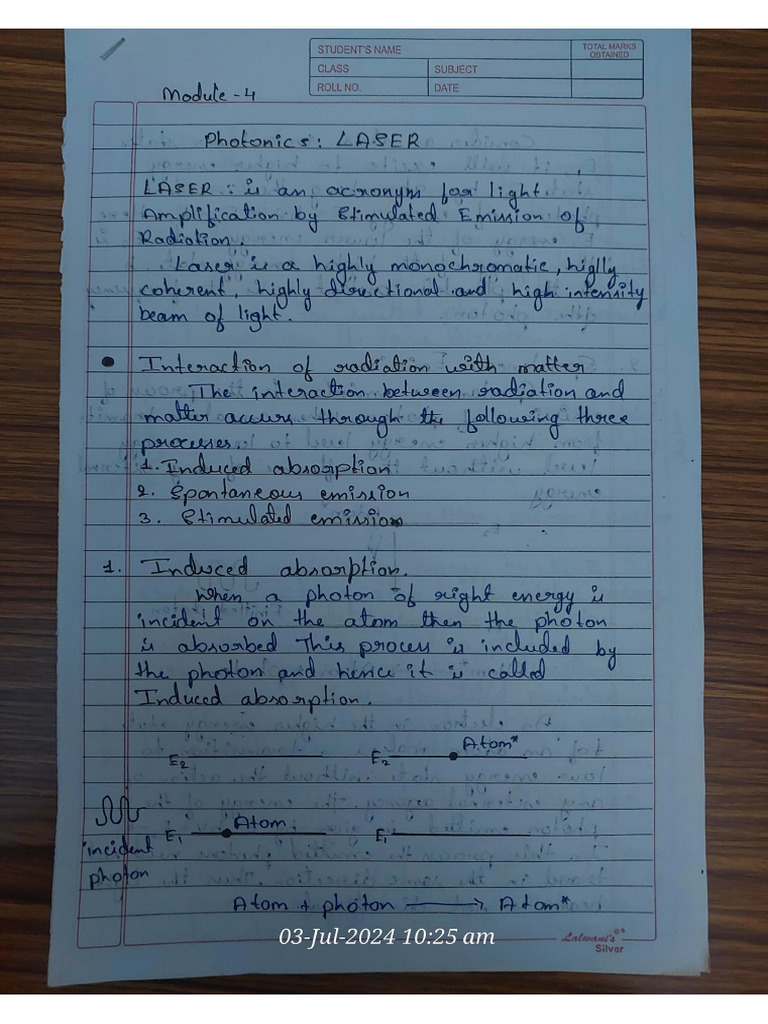 STUDENT'S NAME
TOTAL MARKS OBTAINED
CLASS
SUBJECT
ROLL NO.
DATE
Module - 4
Photonics: LASER
LASER : is an acronym for light
Amplification by Stimulated Emission of
Radiation.
Laser is a highly monochromatic, higlly
coherent, highly directional and high intensity
beam of light.
• Interaction of radiation with matter
The interaction between radiation and
matter accurs through the following three
processes
1. Induced absorption
2. Spontaneous emission
3. Stimulated emission
1. Induced absorption.
When a photon of right energy is
incident on the atom then the photon
is absorbed This process is included by
the photon and hence it is called
Induced absorption.
E2 E2 Atom*
E1 Atom. E1
incident
photon
Atom + photon → Atom*
03-Jul-2024 10:25 am
Lalwani's
Silver